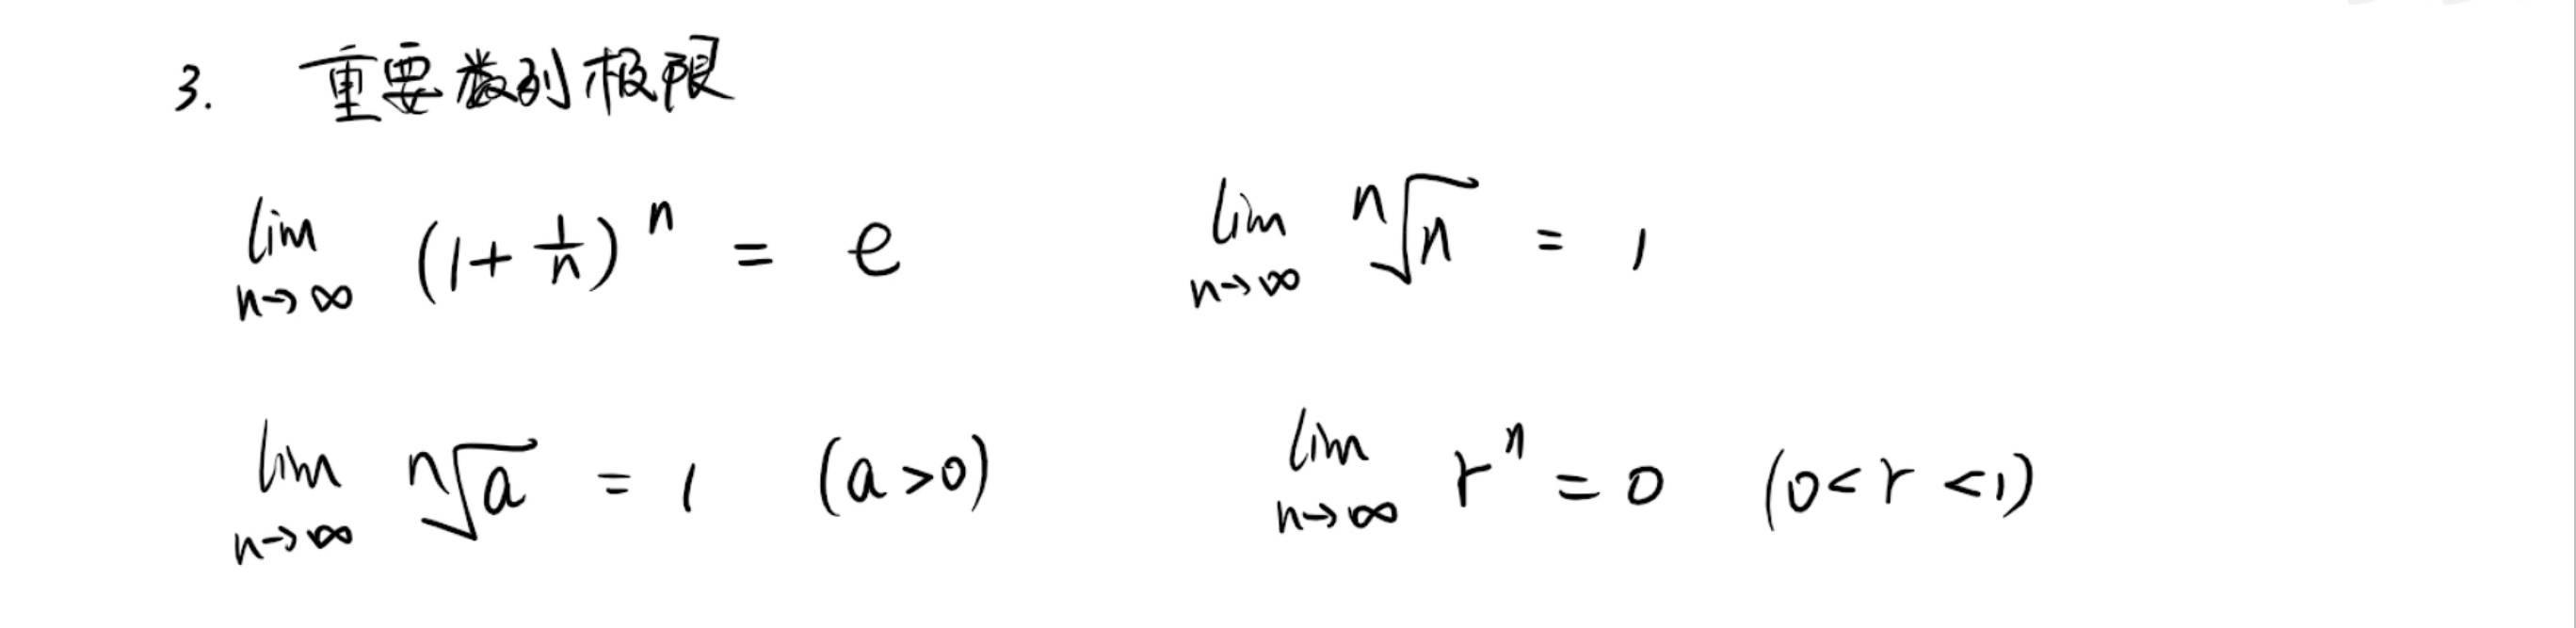 3. 重要数列极限
lim n→∞ (1+1/n)^n = e    lim n→∞ ⁿ√n = 1
lim n→∞ ⁿ√a = 1 (a>0)    lim n→∞ r^n = 0 (0<r<1)